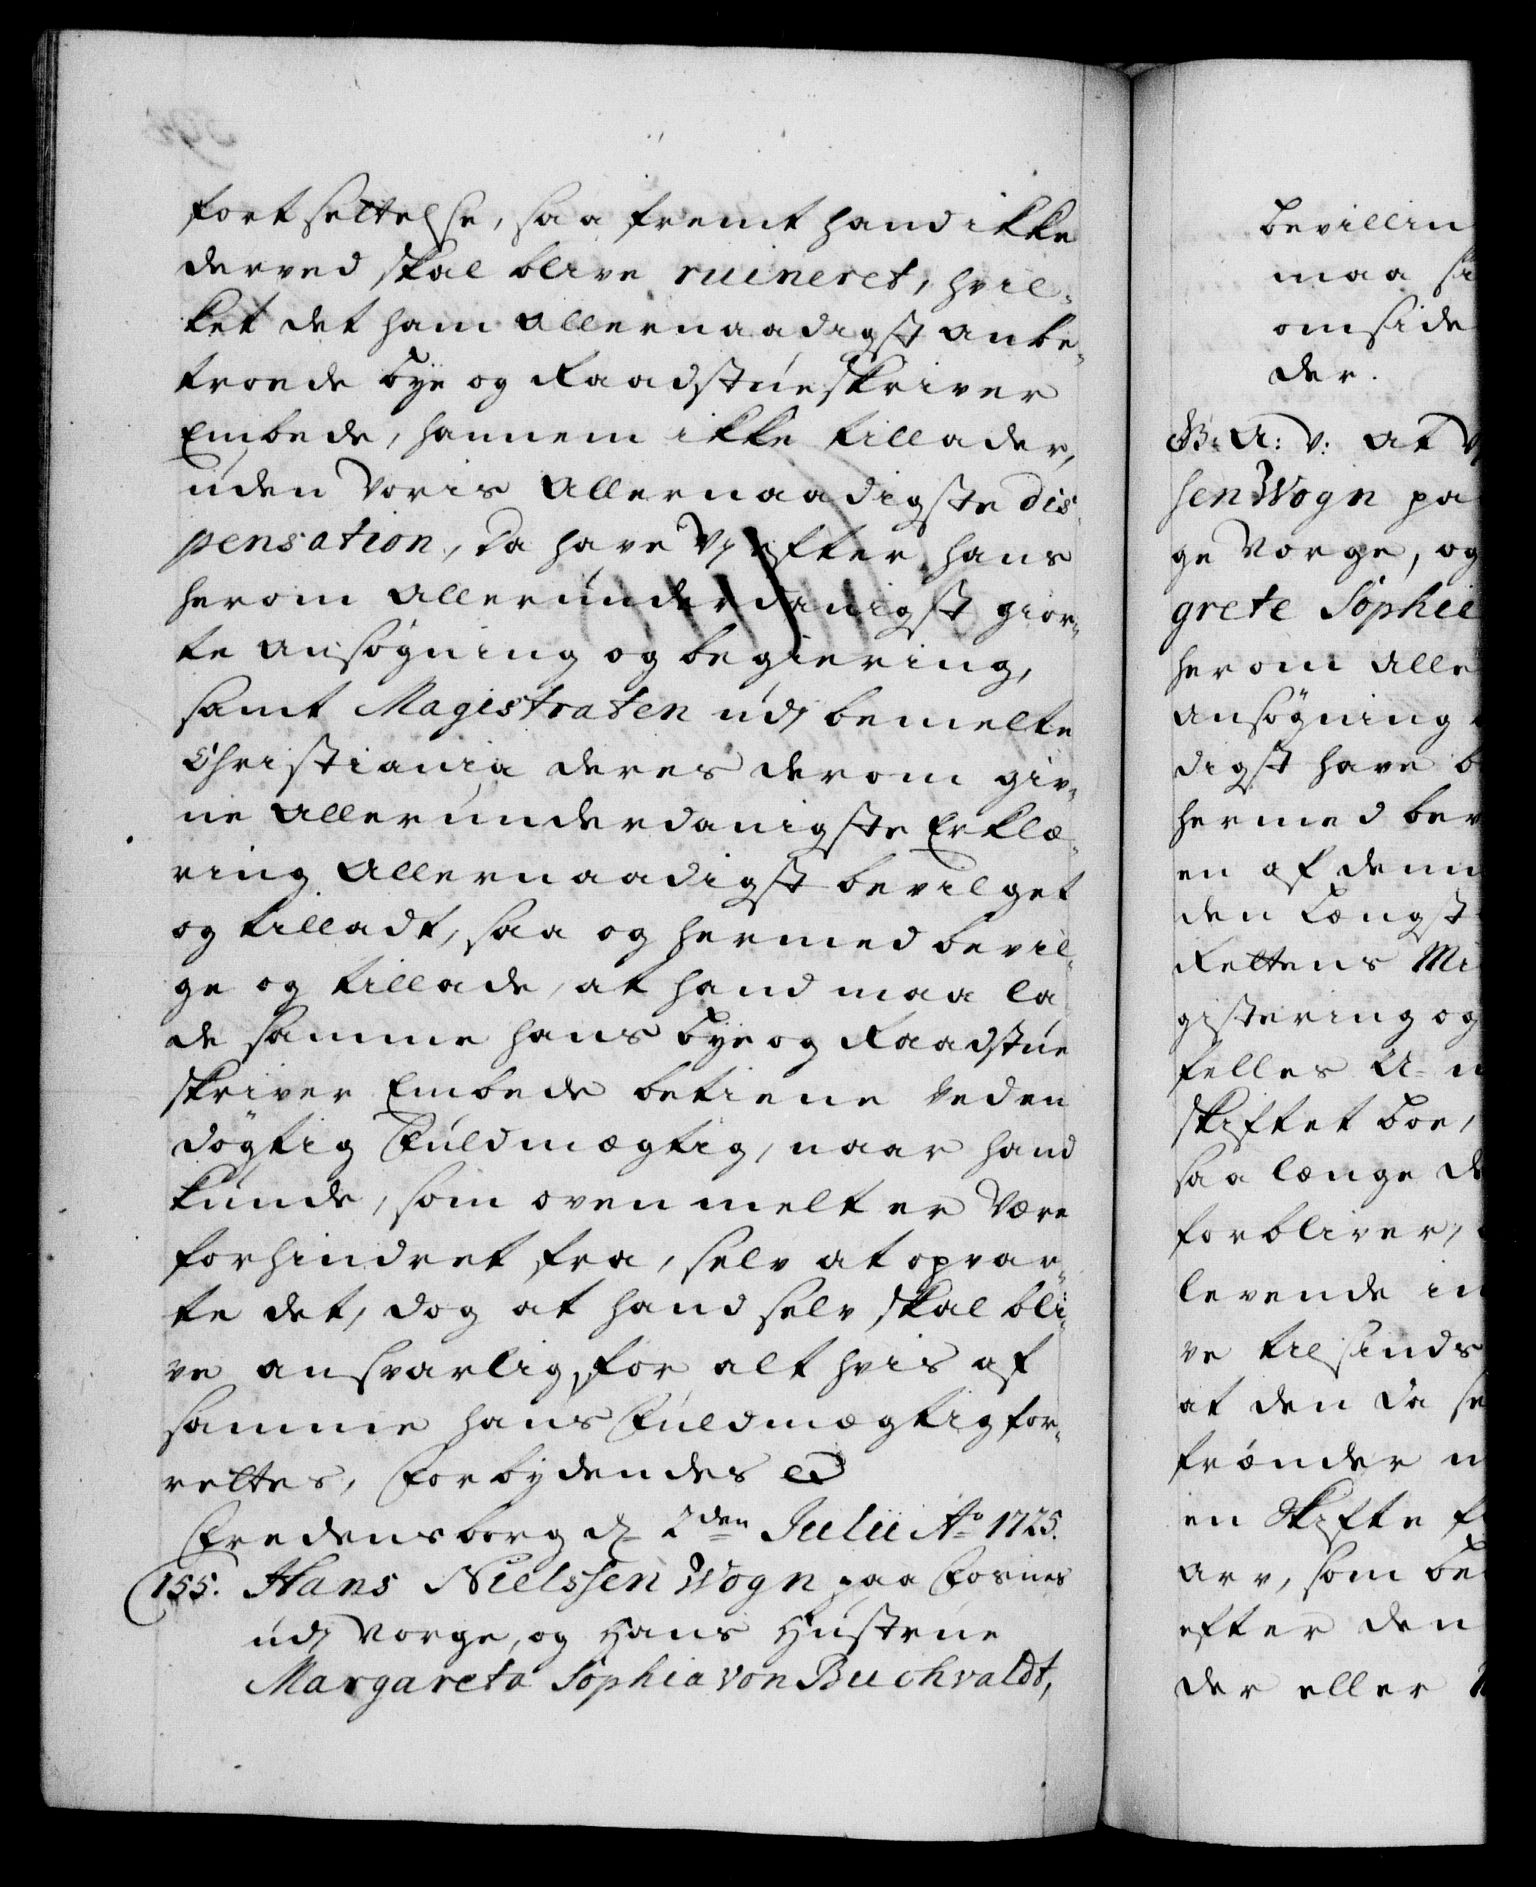 fortsettelse, saa fremt hand ikke
derved skal blive ruineret, hvil-
ket det ham Allernaadigst anbe-
troede bye og Raadstueskriver
Embede, hannem ikke tillader,
uden Voris Allernaadigste dis-
pensation, Da have Vi efter hans
herom Allerunderdanigst gior-
te ansøgning og begiering,
samt Magistraten udj bemelte
Christiania deres derom giv-
ne Allerunderdanigste Erklæ-
ring Allernaadigst bevilget
og tilladt, saa og hermed bevil-
ge og tillade, at hand maa la
de samme hans bye og Raadstue
skriver Embede betiene ved en
døgtig Fuldmægtig, naar hand
kunde, som ovenmelt er være
forhindret fra, selv at opvar-
te det, dog at hand selv skal bli-
ve ansvarlig for alt hvis af
samme hans Fuldmægtig for-
rettes, Forbydendes
Fredensborg d. 2den Julii Ao 1725.
155. Hans Nielssen Wogn paa Fosnes
udj Norge, og Hans Hustrue
Margareta Sophia von Buchvaldt,
bevillin
maa
omside
der.
G: A: V: At V
sen Wogn pa
ge Norge, og
grete Sophie
herom Alle
ansøgning
digst have b
hermed bev
en af dem
den Længst
Rettens Mi
gistering og
felles U-
skiftet boe,
saa længe de
forbliver,
levende in
ve tilsinds
at den da se
frænder
en Skifte f
arv, som be
efter den
der eller